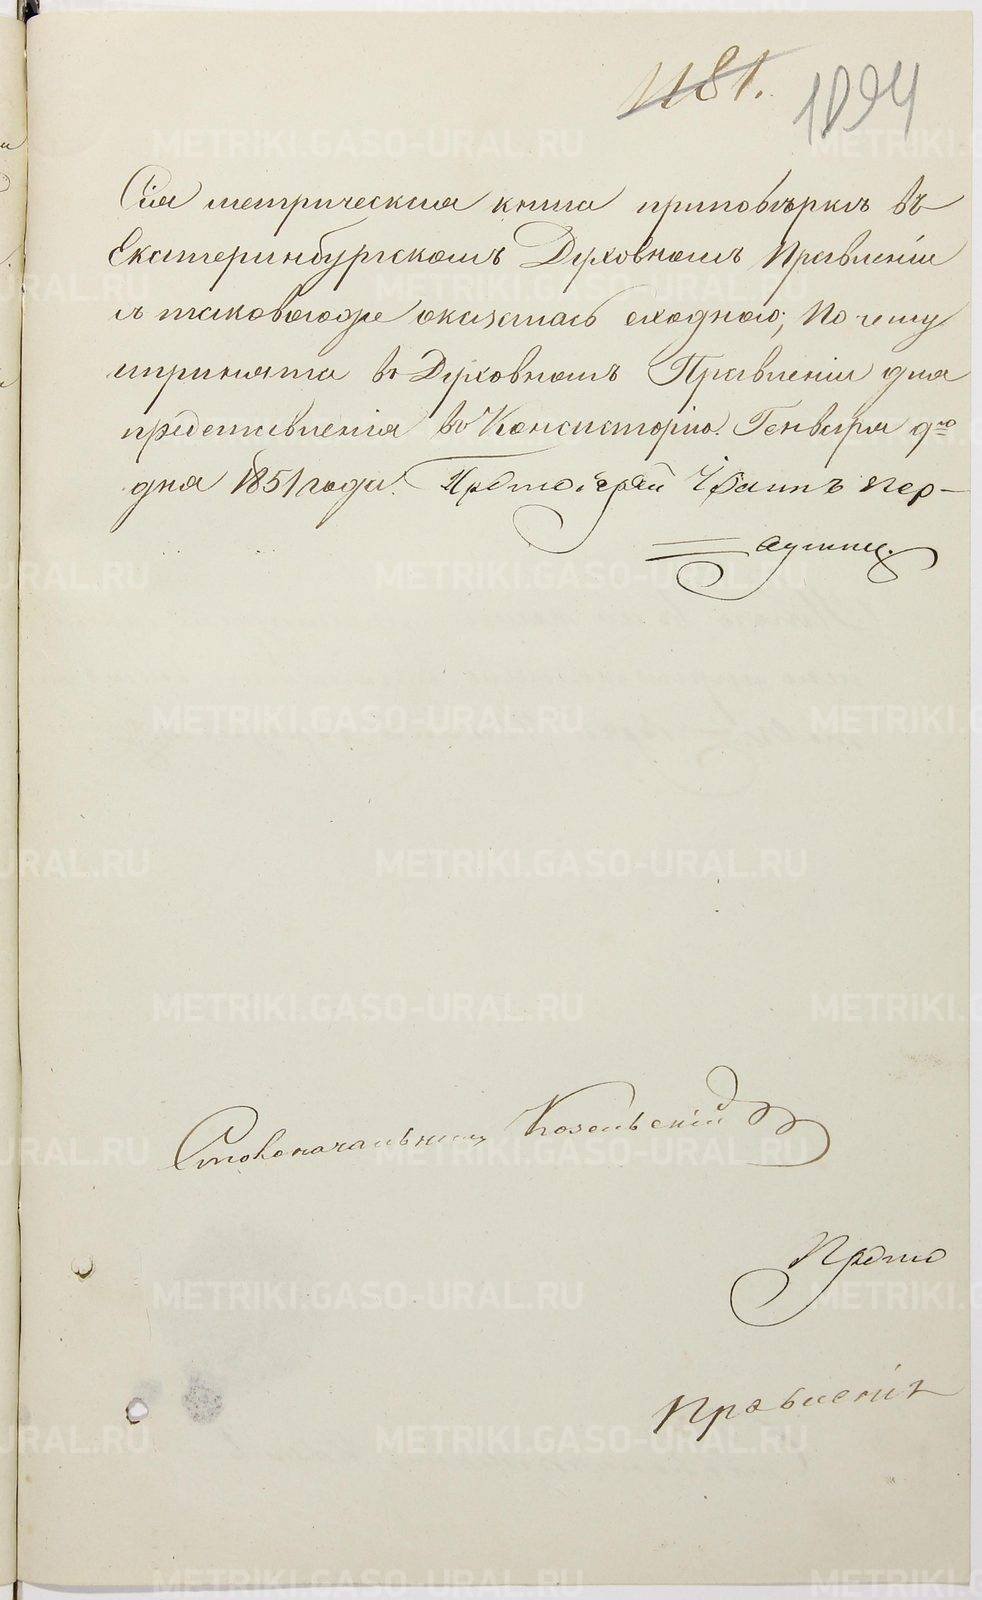 1181.
1094
Сія метрическая книга приповѣркѣ въ
Екатеринбургскомъ Духовномъ Правленіи
съ таковоюже оказалась сходною; По чему
и принята въ Духовномъ Правленіи для
представленія въ Консисторію. Генваря
дня 1851 года. Протоіерей Іоаннъ
Столоначальникъ Козельскій
Прото
Правленія
METRIKI.GASO-URAL.RU